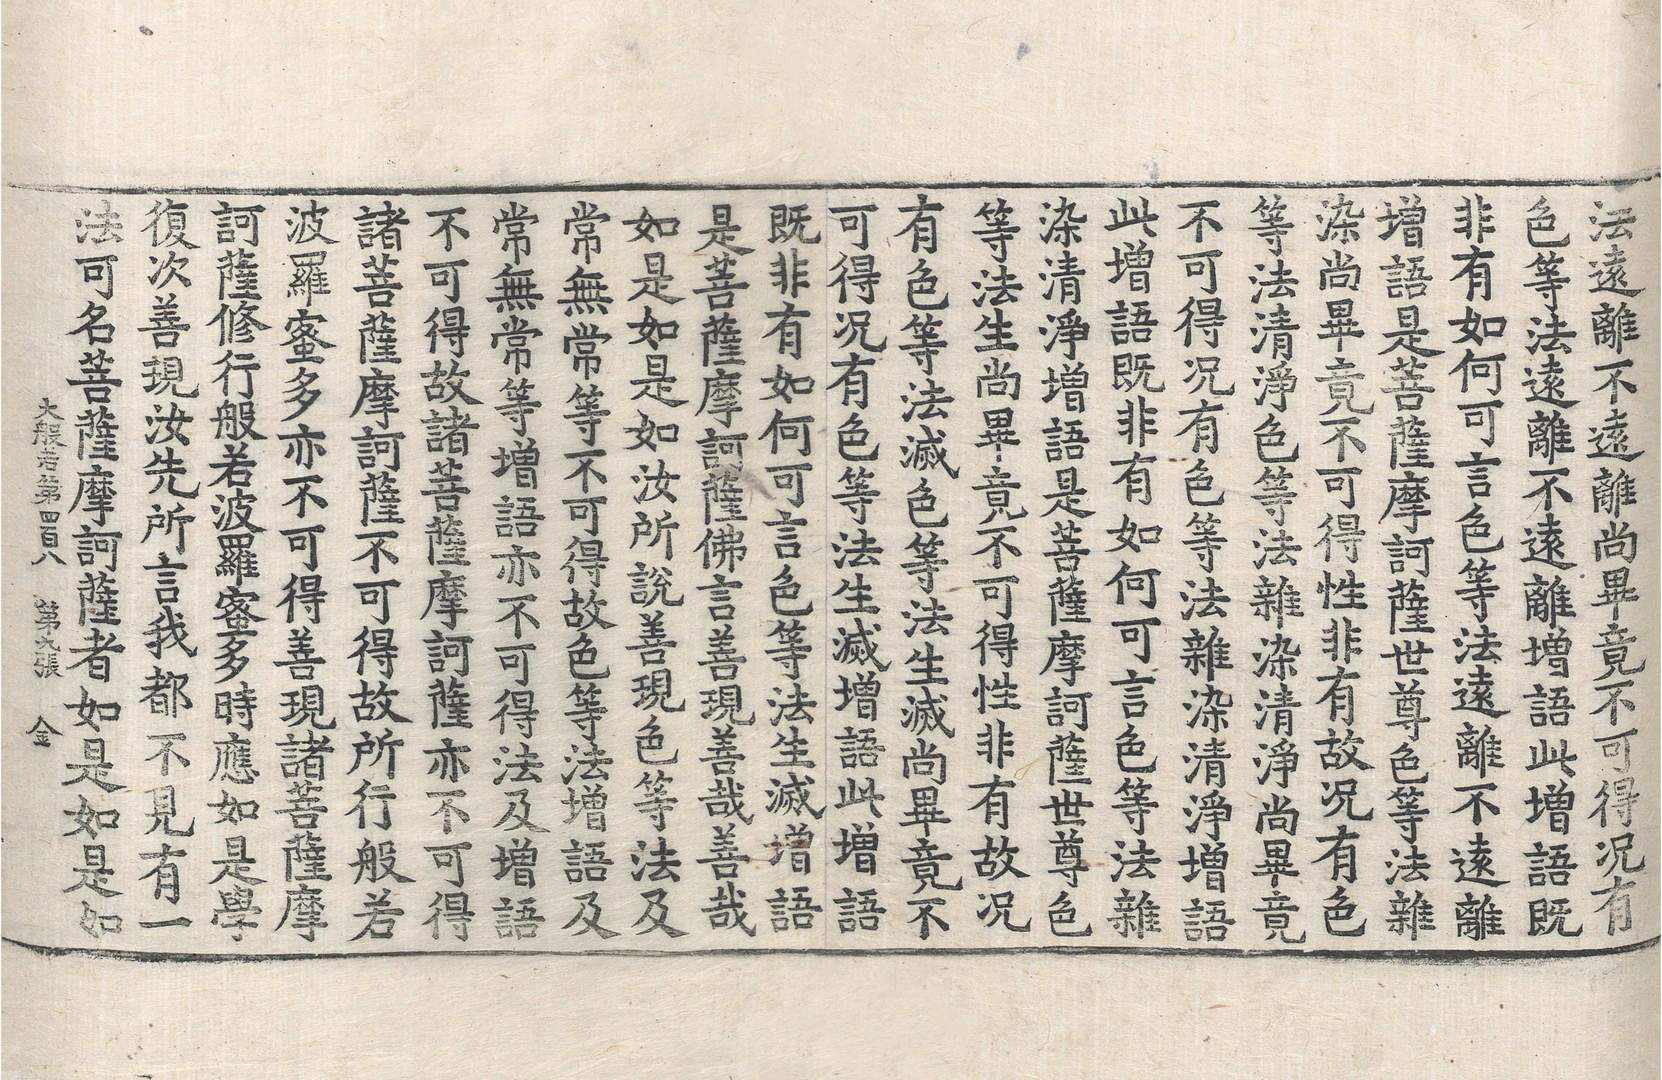 法遠離不遠離尚畢竟不可得况有
色等法遠離不遠離增語此增語既
非有如何可言色等法遠離不遠離
增語是菩薩摩訶薩世尊色等法雜
染尚畢竟不可得性非有故况有色
等法清淨色等法雜染清淨尚畢竟
不可得况有色等法雜染清淨增語
此增語既非有如何可言色等法雜
染清淨增語是菩薩摩訶薩世尊色
等法生尚畢竟不可得性非有故况
有色等法滅色等法生滅尚畢竟不
可得况有色等法生滅增語此增語
既非有如何可言色等法生滅增語
是菩薩摩訶薩佛言善現善哉善哉
如是如是如汝所說善現色等法及
常無常等不可得故色等法增語及
常無常等增語亦不可得法及增語
不可得故諸菩薩摩訶薩亦不可得
諸菩薩摩訶薩不可得故所行般若
波羅蜜多亦不可得善現諸菩薩摩
訶薩修行般若波羅蜜多時應如是學
復次善現汝先所言我都不見有一
法可名菩薩摩訶薩者如是如是如
大般若第四百八 第九張 金